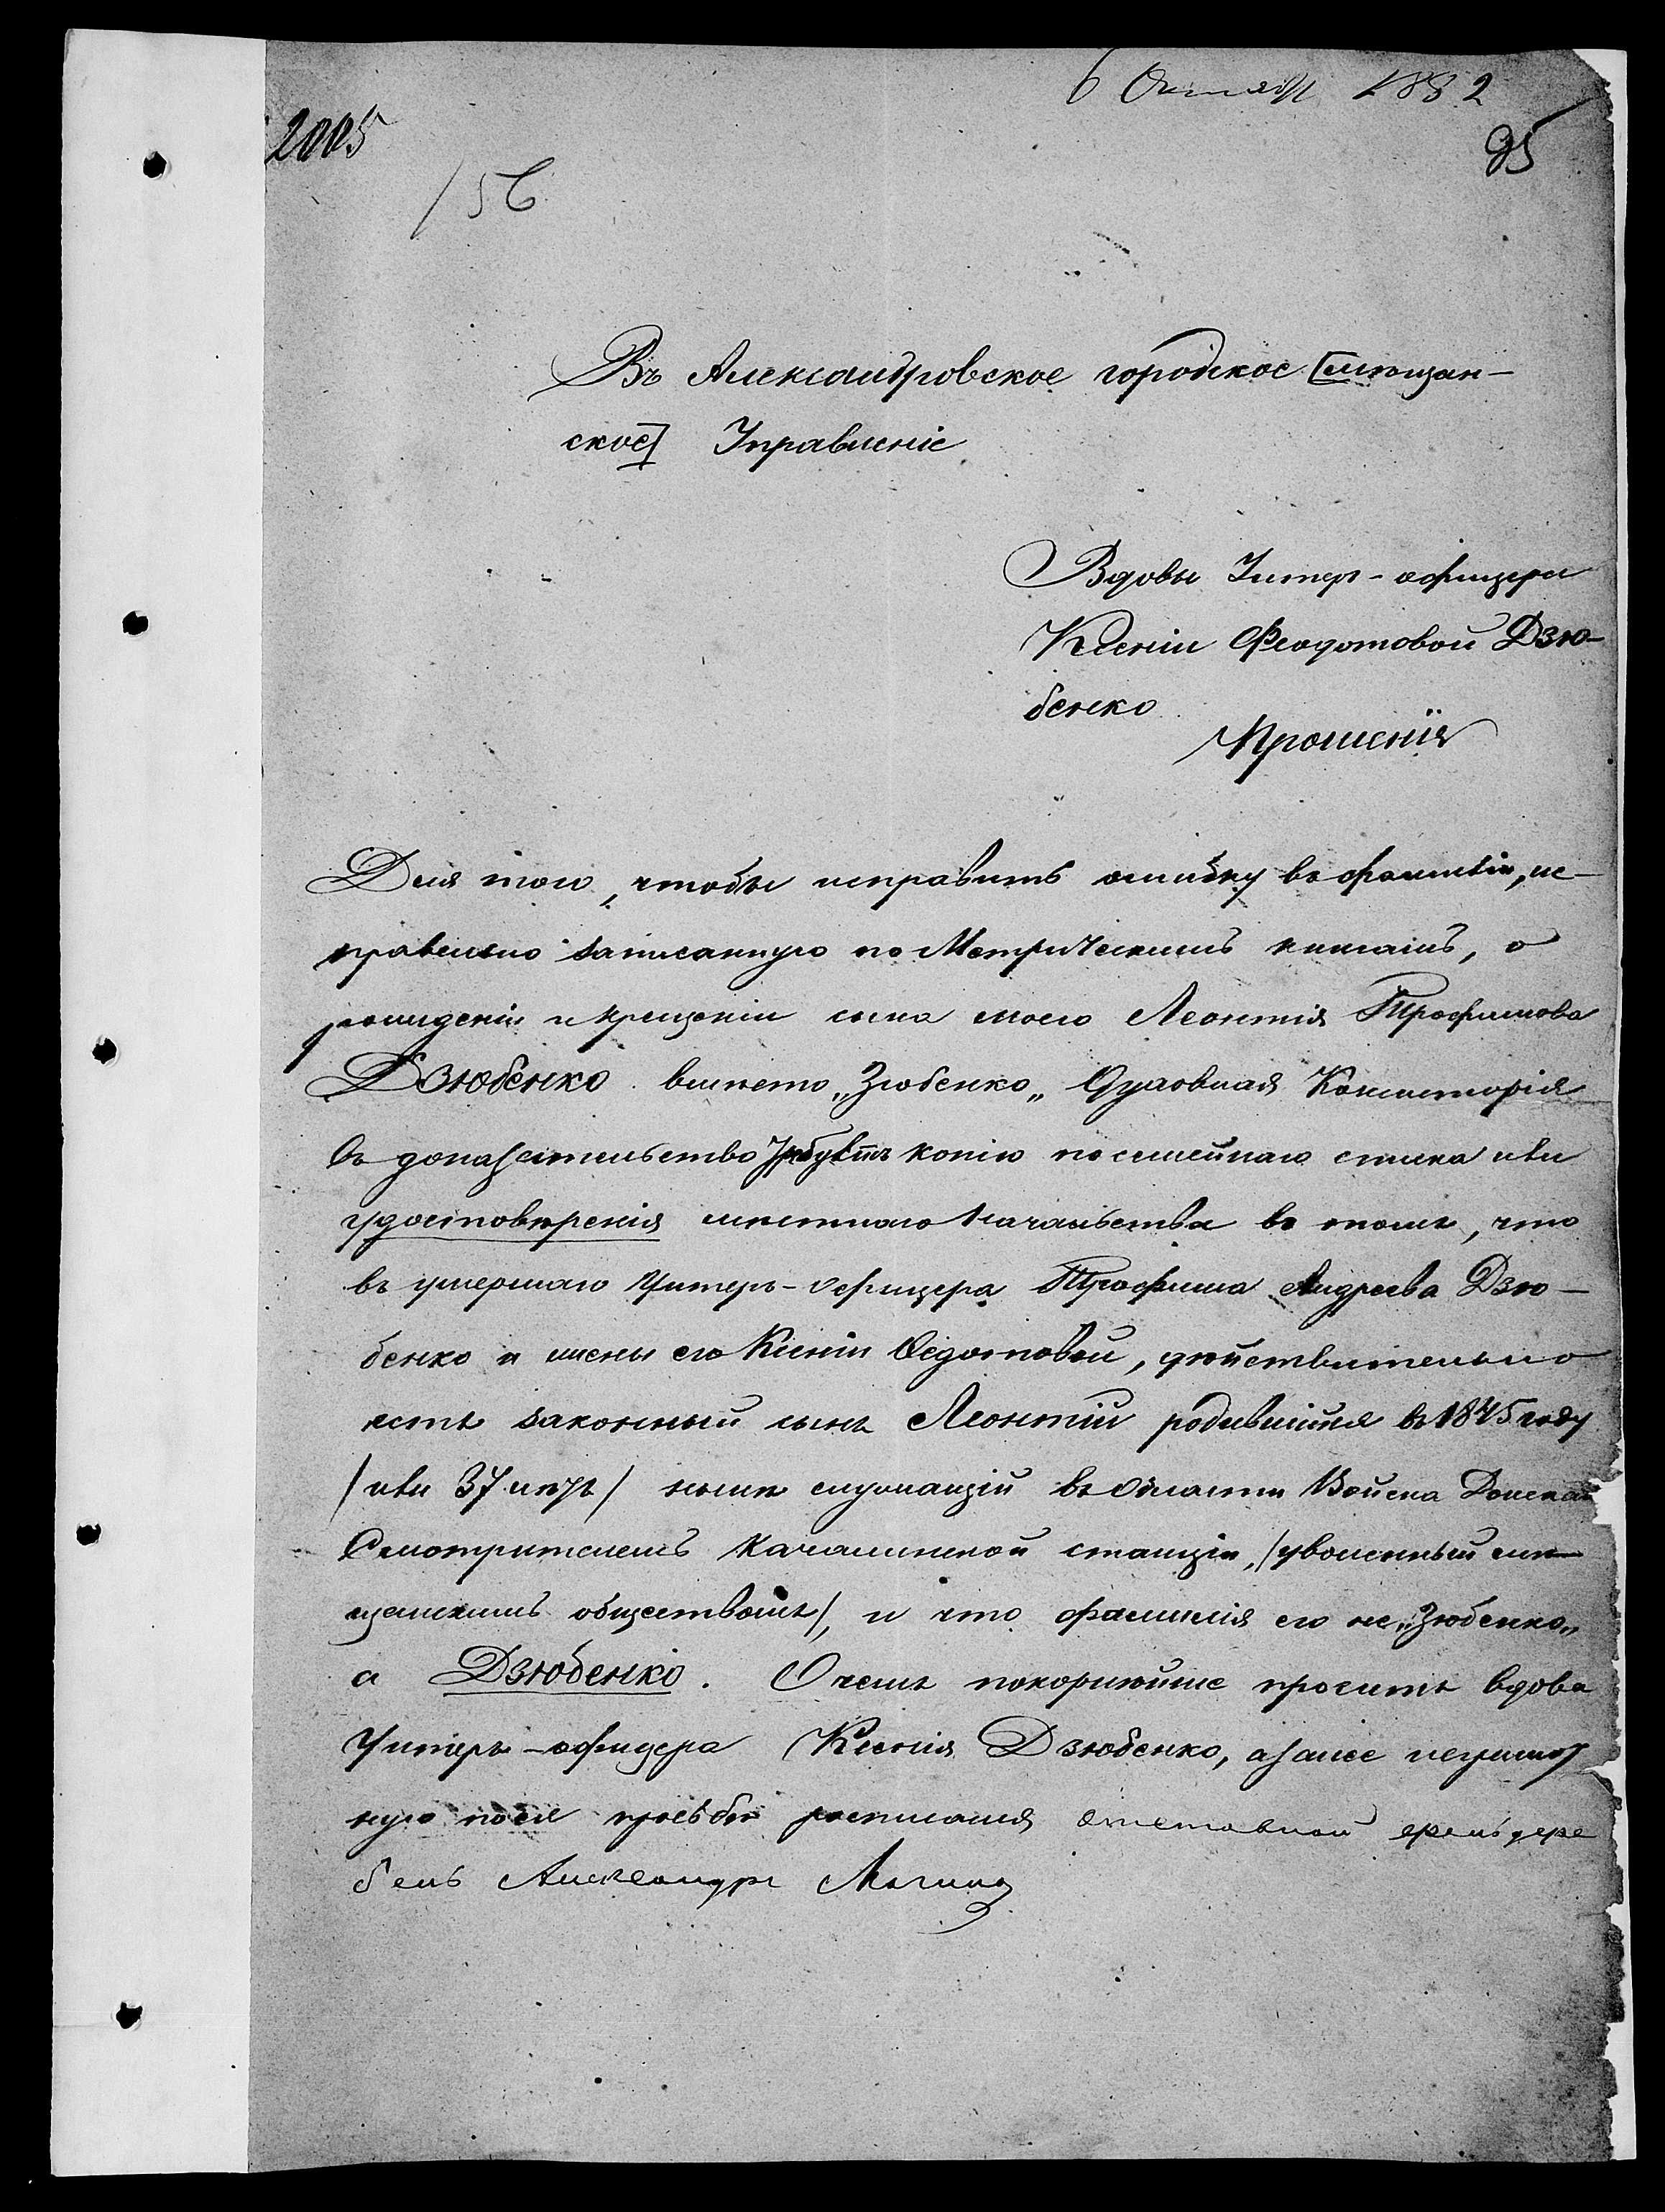 6 Октября 1882
2005
95
156
Въ Александровское городское [мѣщан-
ское] Управленіе
Вдовы Унтер-офицера
Ксеніи Феодотовой Дзю-
бенко
Прошенія
Для того, чтобы исправить ошибку въ фамиліи, не-
правельно записанную по Метрическимъ книгамъ, о
рожденіи и крещеніи сына моего Леонтія Трофимова
Дзюбенко вмѣсто „Зюбенко„ Духовная Консисторія
въ доказательство требуетъ копію посемейнаго списка или
удостовѣренія мѣстнаго Начальства въ томъ, что
въ умершаго Унтеръ-офицера Трофима Андреева Дзю-
бенко и жены его Ксеніи Федотовой, дѣйствительно
есть законный сынъ Леонтій родившійся въ 1845 году
/или 37 лѣтъ/ нынѣ служащій въ Области Войска Донскаго
Смотрителемъ Качалинской станціи, /уволенный мѣ-
щанскимъ обществомъ/, и что фамилія его не „Зюбенко„
а Дзюбенко. О чемъ покорнѣйше проситъ вдова
Унтеръ-офицера Ксенія Дзюбенко, а за нее неграмот
ную по ея прозьбѣ росписался отставной фельдфе
бель Александръ